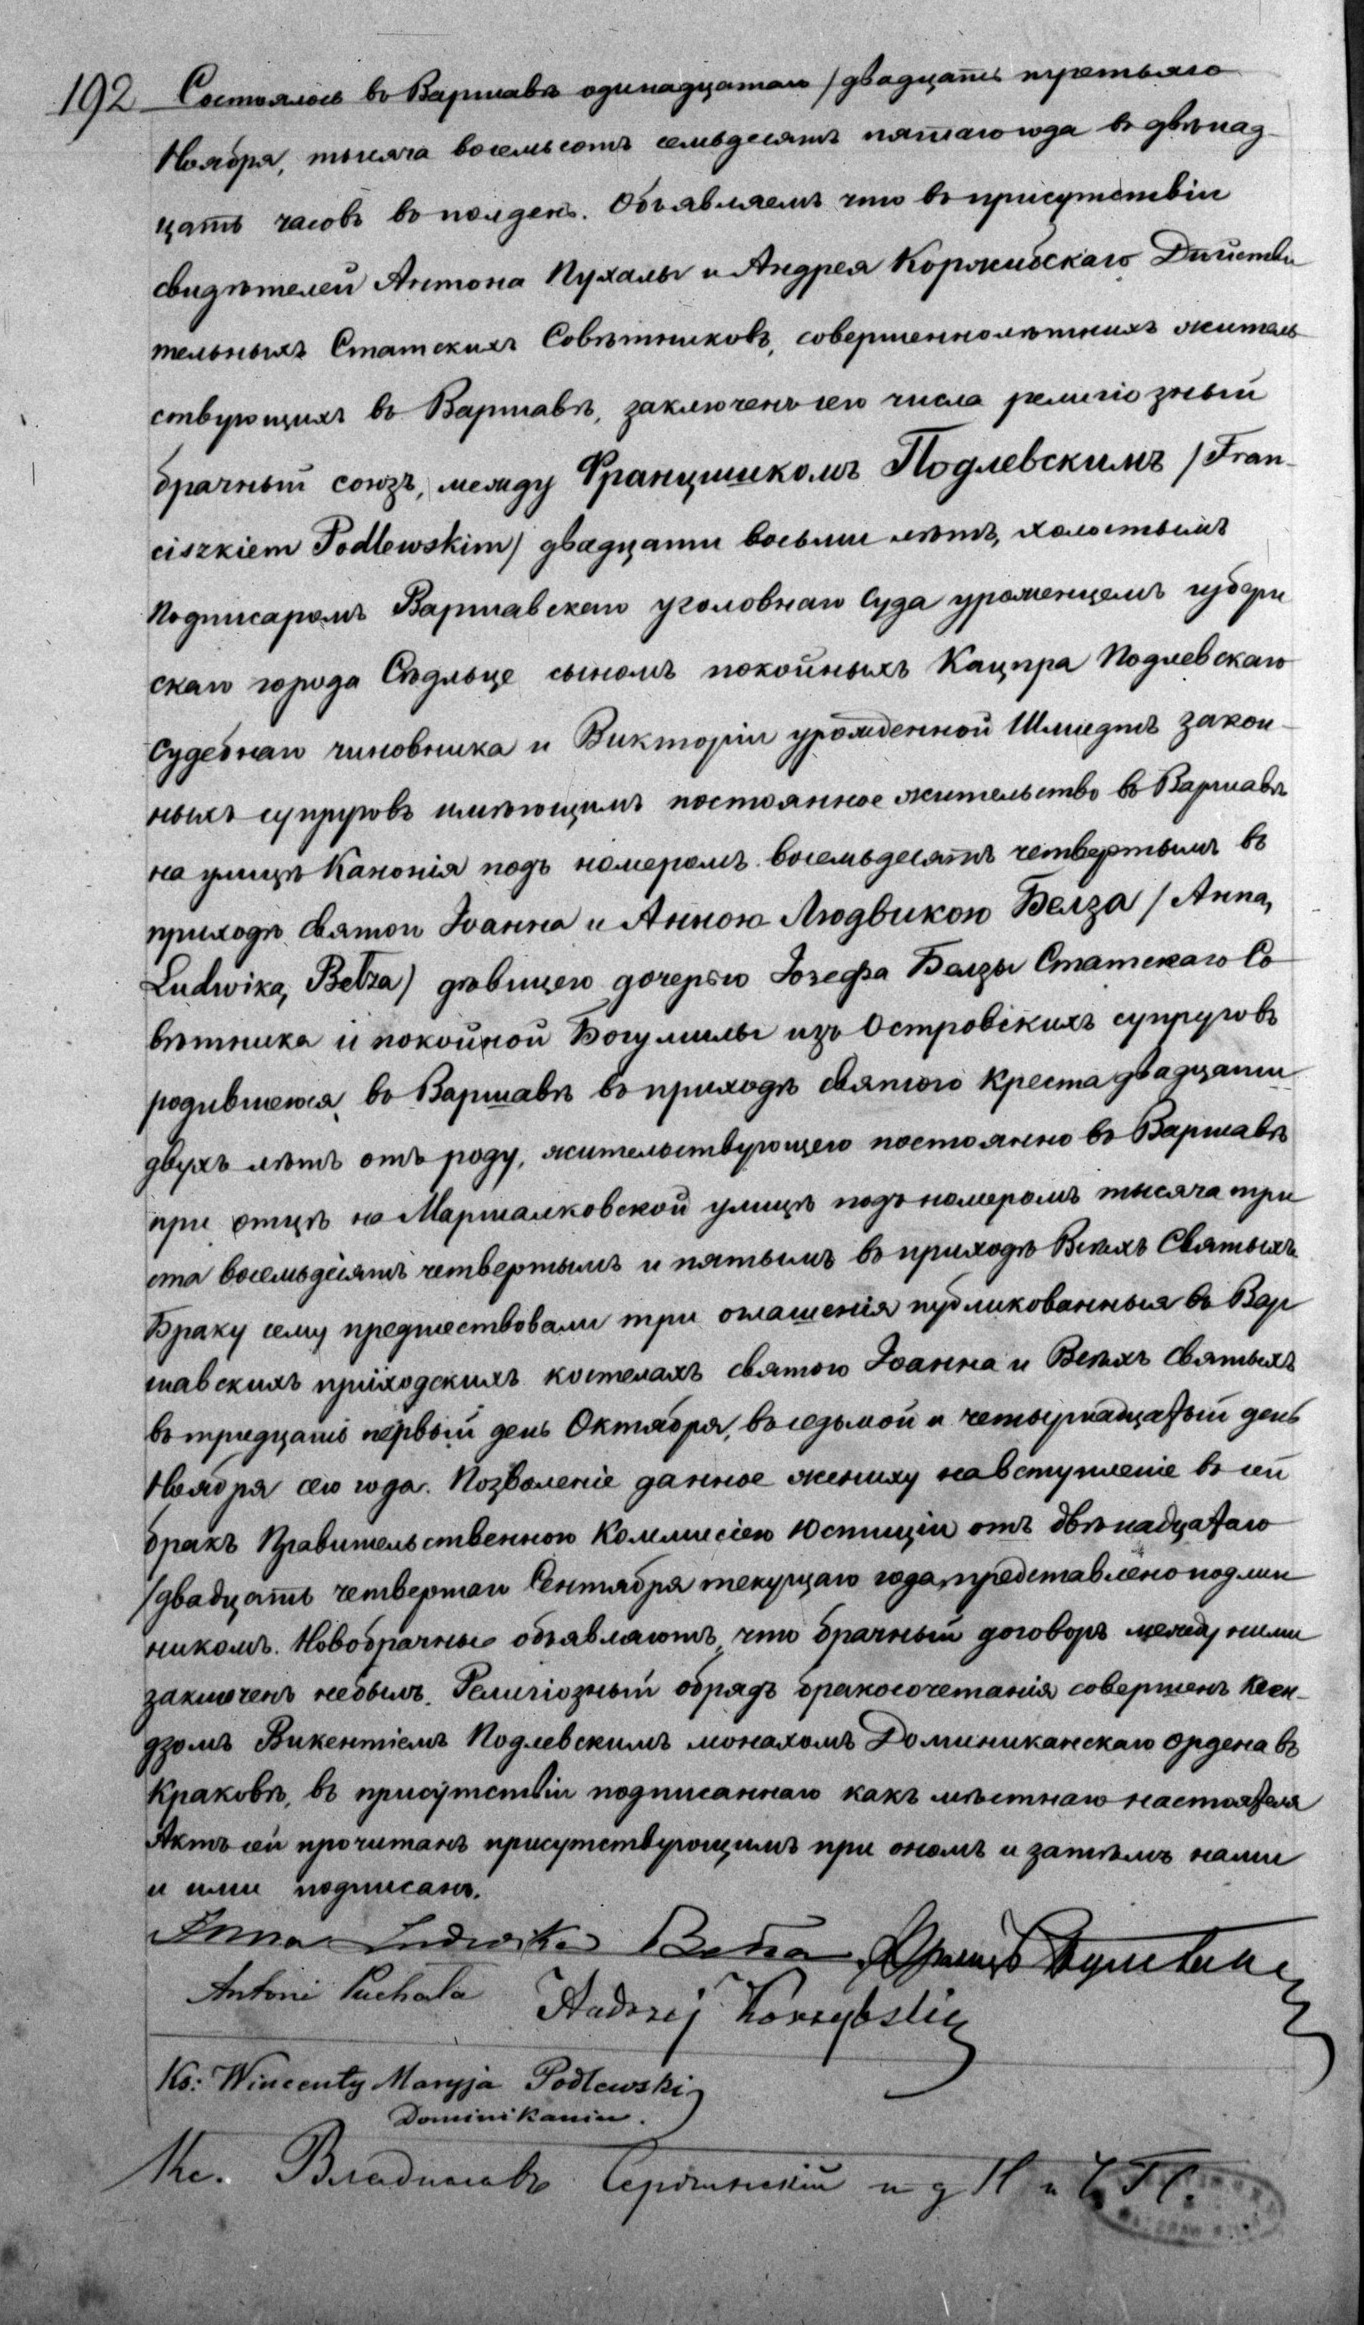 192 Состоялось въ Варшавѣ одинадцатаго / двадцать третьяго
Ноября, тысяча восемьсотъ семьдесятъ пятаго года въ двѣнад-
цать часовъ въ полдень. Объявляемъ что въ присутствіи
свидѣтелей Антона Пухалы и Андрея Коржибскаго Дѣйстви
тельныхъ Статскихъ Совѣтниковъ, совершеннолѣтнихъ житель
ствующихъ въ Варшавѣ, заключенъ сего числа религіозный
брачный союзъ, между Францишкомъ Подлевскимъ / Fran-
ciszkiem Podlewskim / двадцати восьми лѣтъ, холостымъ
Подписаромъ Варшавскаго уголовнаго Суда уроженцемъ губерн
скаго города Сѣдльце сыномъ покойныхъ Кацпра Подлевскаго
Судебнаго чиновника и Викторіи урожденной Шмидтъ закон-
ныхъ супруговъ имѣющимъ постоянное жительство въ Варшавѣ
на улицѣ Канонія подъ номеромъ восемьдесятъ четвертымъ въ
приходѣ Святого Іоанна и Анною Людвикою Белза / Anna,
Ludwika, Bełza) дѣвицею дочерью Іозефа Белзы Статскаго Со
вѣтника и покойной Богумилы изъ Островскихъ супруговъ
родившеюся въ Варшавѣ въ приходѣ святого Креста двадцати
двухъ лѣтъ отъ роду, жительствующего постоянно въ Варшавѣ
при отцѣ на Маршалковской улицѣ подъ номеромъ тысяча три
ста восемьдесятъ четвертымъ и пятымъ въ приходѣ Всѣхъ Святыхъ.
Браку сему предшествовали три оглашенія публикованныя въ Вар
шавскихъ приходскихъ костелахъ святого Іоанна и Всѣхъ Святыхъ
въ тридцать первый день Октября, въ седьмой и четырнадцатый день
Ноября сего года. Позволеніе данное жениху на вступленіе въ сей
бракъ Правительственною Коммисіею Юстиціи отъ двѣнадцатаго
/двадцать четвертаго Сентября текущаго года, представлено подлин
никомъ. Новобрачные объявляютъ, что брачный договоръ между ними
заключенъ небылъ. Религіозный обрядъ бракосочетанія совершенъ Ксен-
дзомъ Викентіемъ Подлевскимъ монахомъ Доминиканскаго ордена въ
Краковѣ, въ присутствіи подписаннаго какъ мѣстнаго настоятеля
Актъ сей прочитанъ присутствующимъ при ономъ и затѣмъ нами
и ими подписанъ.
Anna Ludwika Bełza
Antoni Puchała Andrzej Korzybski
Ks: Wincenty Maryja Podlewski
Dominikanin.
Кс. Владиславъ